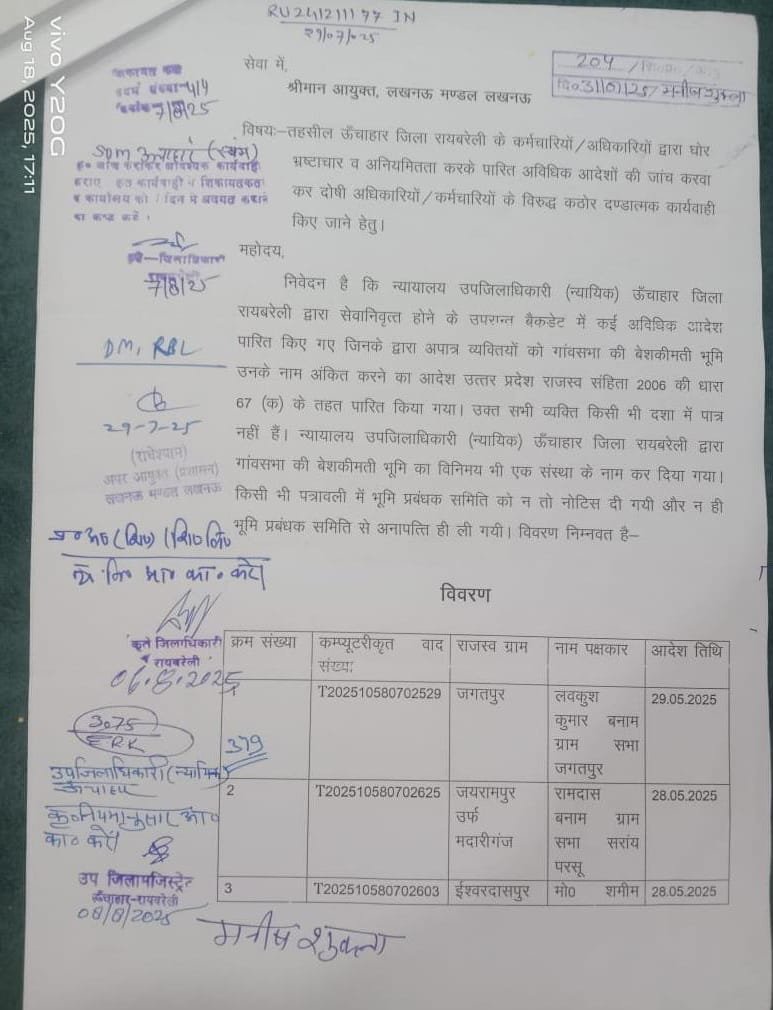 RU241211177 IN
29/07/025
vivo Y20G
Aug 18, 2025, 17:11
सेवा में,
श्रीमान आयुक्त, लखनऊ मण्डल लखनऊ
204
दि0 31/07/25 / मनीज शुक्ला
शिकायत कक्ष
7/8/25
SDM ऊंचाहार (स्वयं)
7/8/25
विषयः–तहसील ऊँचाहार जिला रायबरेली के कर्मचारियों/अधिकारियों द्वारा घोर
भ्रष्टाचार व अनियमितता करके पारित अविधिक आदेशों की जांच करवा
कर दोषी अधिकारियों/कर्मचारियों के विरुद्ध कठोर दण्डात्मक कार्यवाही
किए जाने हेतु।
महोदय,
निवेदन है कि न्यायालय उपजिलाधिकारी (न्यायिक) ऊँचाहार जिला
रायबरेली द्वारा सेवानिवृत्त होने के उपरान्त बैकडेट में कई अविधिक आदेश
पारित किए गए जिनके द्वारा अपात्र व्यक्तियों को गांवसभा की बेशकीमती भूमि
उनके नाम अंकित करने का आदेश उत्तर प्रदेश राजस्व संहिता 2006 की धारा
67 (क) के तहत पारित किया गया। उक्त सभी व्यक्ति किसी भी दशा में पात्र
नहीं हैं। न्यायालय उपजिलाधिकारी (न्यायिक) ऊँचाहार जिला रायबरेली द्वारा
गांवसभा की बेशकीमती भूमि का विनिमय भी एक संस्था के नाम कर दिया गया।
किसी भी पत्रावली में भूमि प्रबंधक समिति को न तो नोटिस दी गयी और न ही
भूमि प्रबंधक समिति से अनापत्ति ही ली गयी। विवरण निम्नवत है–
DM, RBL
29-7-25
(राधेश्याम)
अपर आयुक्त (प्रशासन)
लखनऊ मण्डल लखनऊ
कृते जिलाधिकारी
रायबरेली
06.8.2025
3075
ERK
379
उपजिलाधिकारी (न्यायिक)
ऊंचाहार
कृ० नियमानुसार आ०
का० करें।
उप जिलामजिस्ट्रेट
ऊँचाहार-रायबरेली
08/8/2025
विवरण
क्रम संख्या | कम्प्यूटरीकृत वाद संख्या | राजस्व ग्राम | नाम पक्षकार | आदेश तिथि
1 | T202510580702529 | जगतपुर | लवकुश कुमार बनाम ग्राम सभा जगतपुर | 29.05.2025
2 | T202510580702625 | जयरामपुर उर्फ मदारीगंज | रामदास बनाम ग्राम सभा सरांय परसू | 28.05.2025
3 | T202510580702603 | ईश्वरदासपुर | मो0 शमीम | 28.05.2025
मनीष शुक्ला